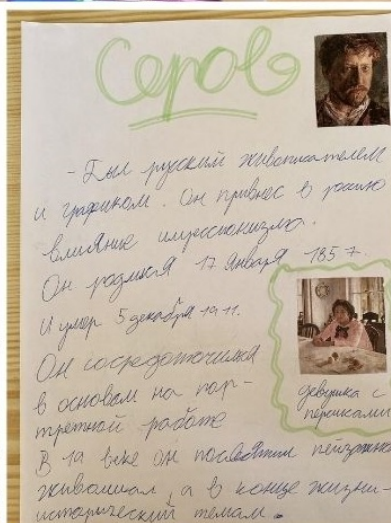 Серов
- Был русским живописателем
и графиком. Он привнес в росию
влияние импрессионизма.
Он родился 17 января 1857.
И умер 5 декабря 1911.
Он сосредоточился
в основом на пор-
третной работе
девушка с
персиками
В 19 веке он посвятил пейзажной
живописи, а в конце жизни-
исторический темам.